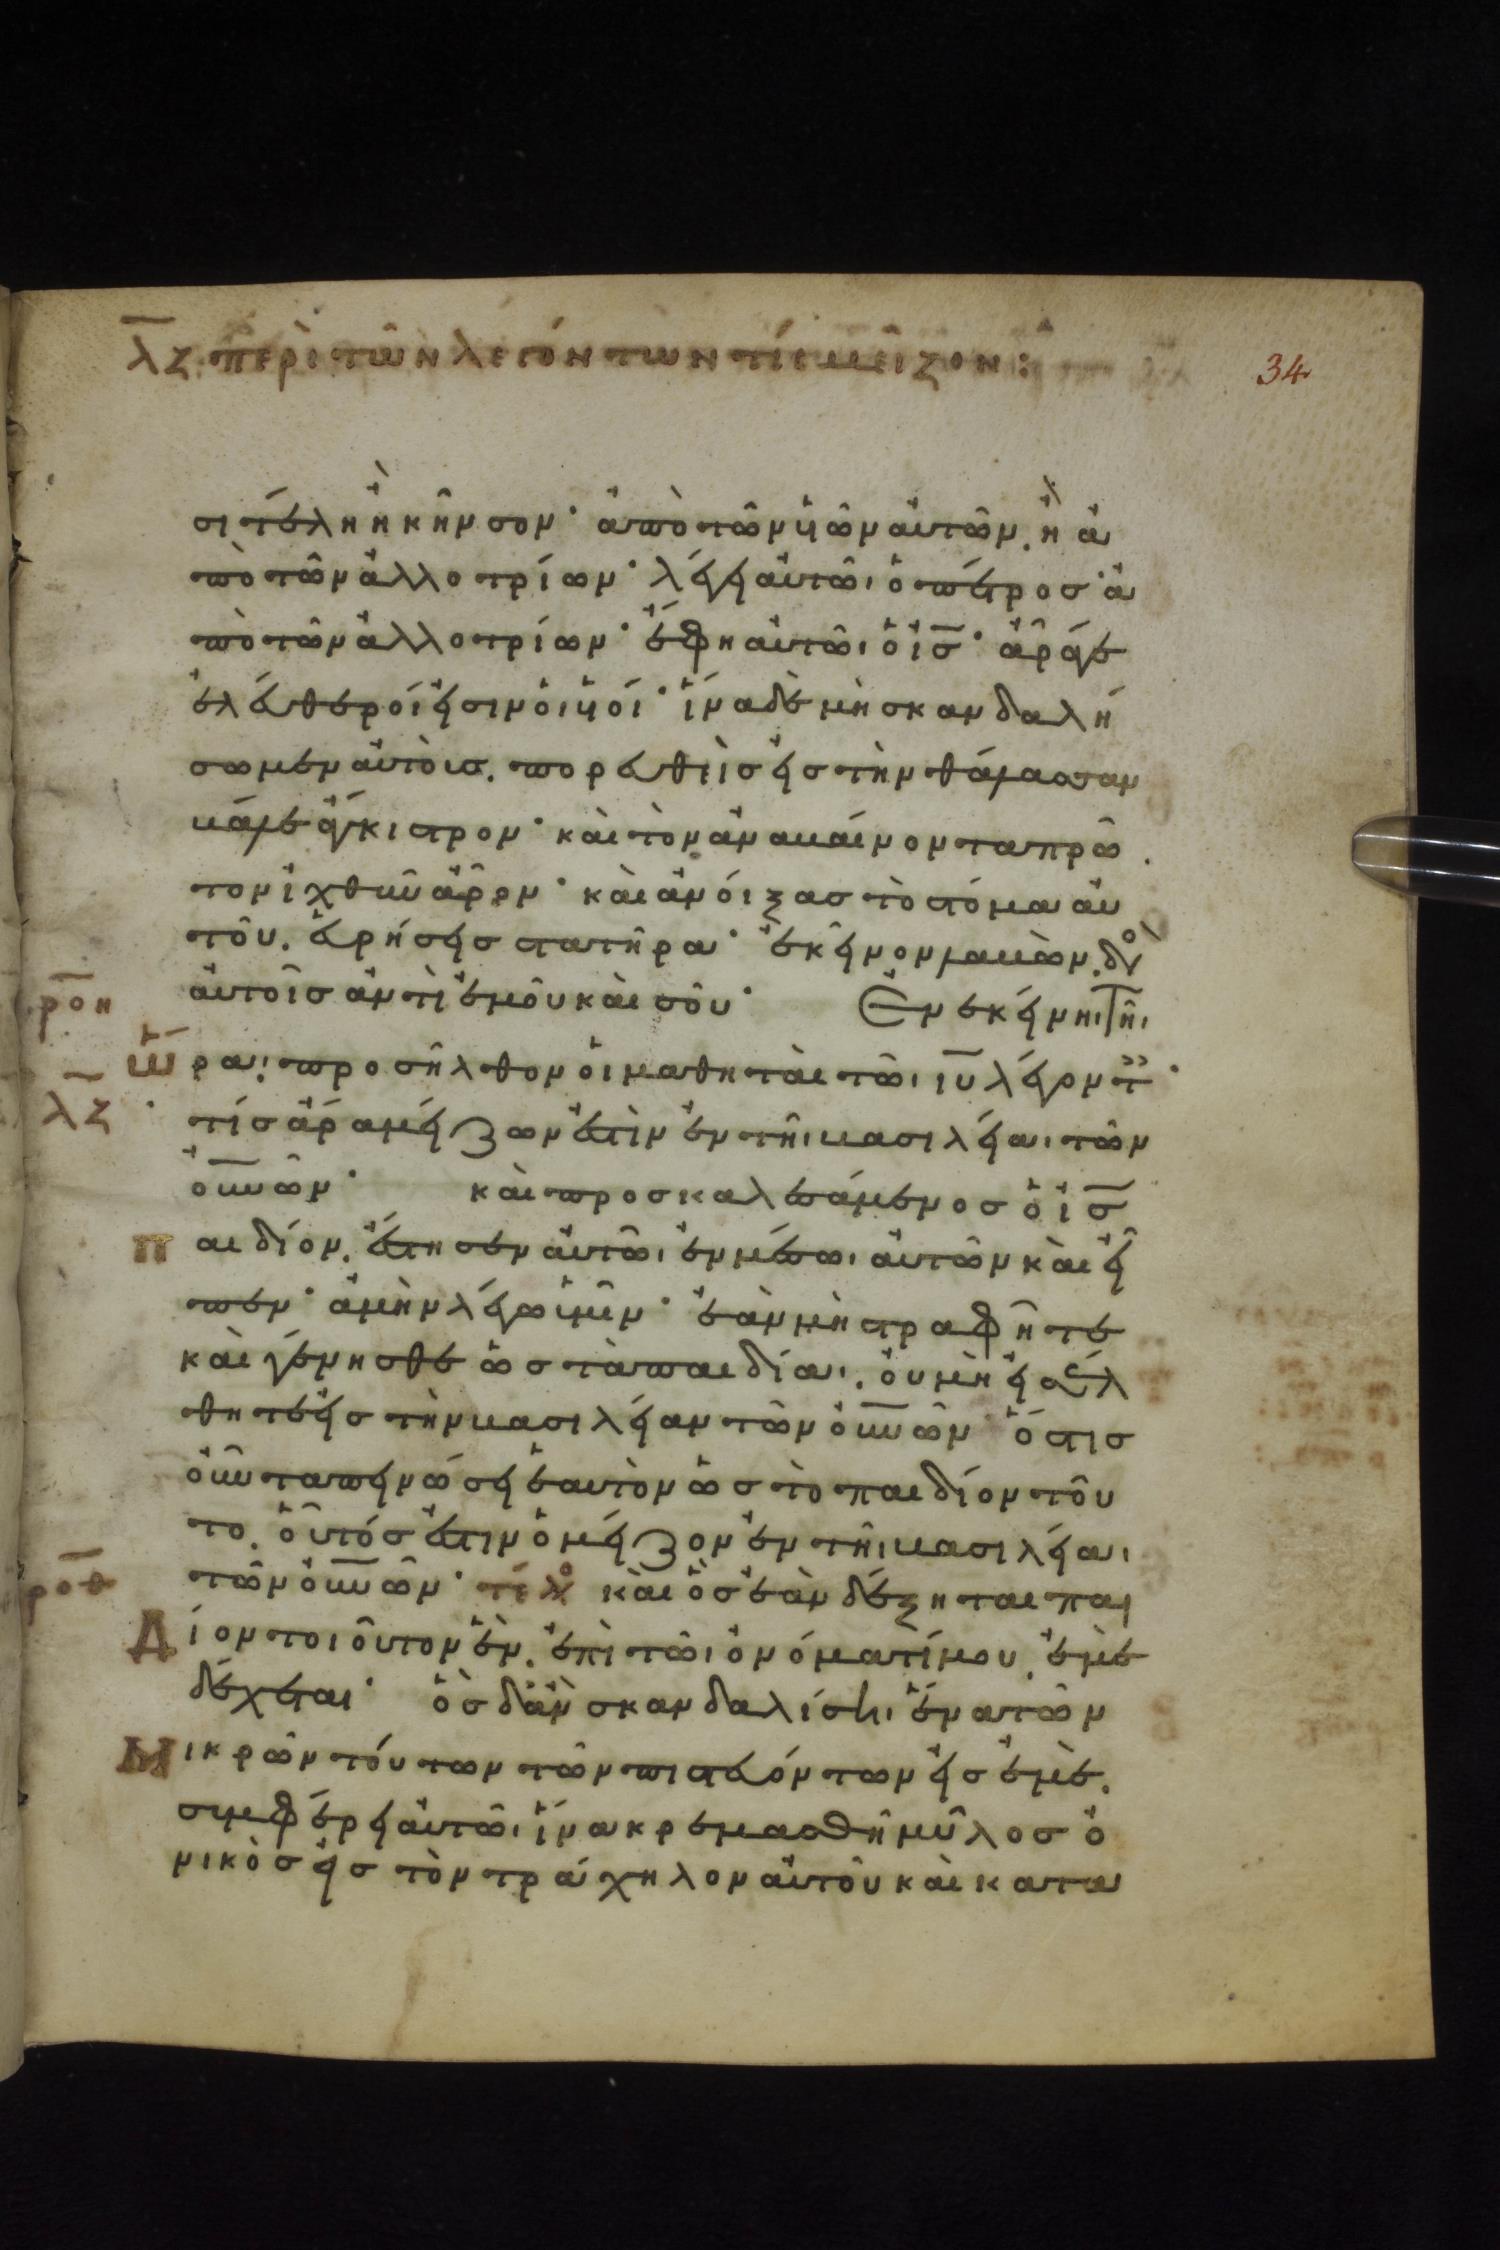 λζ περὶ τῶν λεγόντων τίς μεῖζον:
34
σι τέλη ἢ κῆνσον· ἀπὸ τῶν ϋιῶν αὐτῶν. ἢ ἀ
πὸ τῶν ἀλλοτρίων· λέγει αὐτῶι ὁ πέτροσ· ἀ
πὸ τῶν ἀλλοτρίων· ἔφη αὐτῶι ὁ ἰς̅· ἄρα γε
ἐλεύθεροί εἰσιν ὁι ϋιοί· ἵνα δὲ μὴ σκανδαλή
σωμεν αὐτὸισ. πορευθεὶσ εἰσ τὴν θάλασσαν
βάλε ἄγκιστρον· καὶ τὸν ἀναβάινοντα πρῶ
τον ἰχθῦν ἆρον· καὶ ἀνόιξασ τὸ στόμα αὐ
τοῦ. ἑυρήσεισ στατῆρα· ἐκεῖνον λαβὼν. δὸ
αὐτοῖσ ἀντὶ ἐμοῦ καὶ σοῦ· Ἐν ἐκείνηι τῆι
ρον
ὥραι. προσῆλθον ὁι μαθηταὶ τῶι ιυ̅ λέγοντ·
λζ
τίσ ἄρα μείζων ἐστὶν ἐν τῆι βασιλείαι τῶν
ὀυνῶν· καὶ προσκαλεσάμενοσ ὁ ἰς̅
παιδίον. ἔστησεν αὐτῶι ἐν μέσωι αὐτῶν καὶ εἶ
πεν· ἀμὴν λέγω ὑμῖν· ἐὰν μὴ στραφῆτε
καὶ γένησθε ὡσ τὰ παιδία. ὀυ μὴ εἰσέλ
θητε εἰσ τὴν βασιλείαν τῶν ὀυνῶν· ὅστισ
ὀῦν ταπεινώσει ἑαυτὸν ὡσ τὸ παιδίον τοῦ
το. ὁῦτόσ ἐστιν ὁ μείζον ἐν τῆι βασιλείαι
ροθ
τῶν ὀυνῶν· τέλο καὶ ὃσ ἐὰν δέξηται παι
Δίον τοιοῦτον ἓν. ἐπὶ τῶι ὀνόματί μου. ἐμὲ
δέχεται· ὃσ δ' ἂν σκανδαλίσηι ἕνα τῶν
Μικρῶν τόυτων τῶν πιστευόντων εἰσ ἐμὲ.
συμφέρει αὐτῶι ἵνα κρεμασθῆ μῦλοσ ὀ
νικὸσ εἰσ τὸν τράχηλον αὐτοῦ καὶ κατα